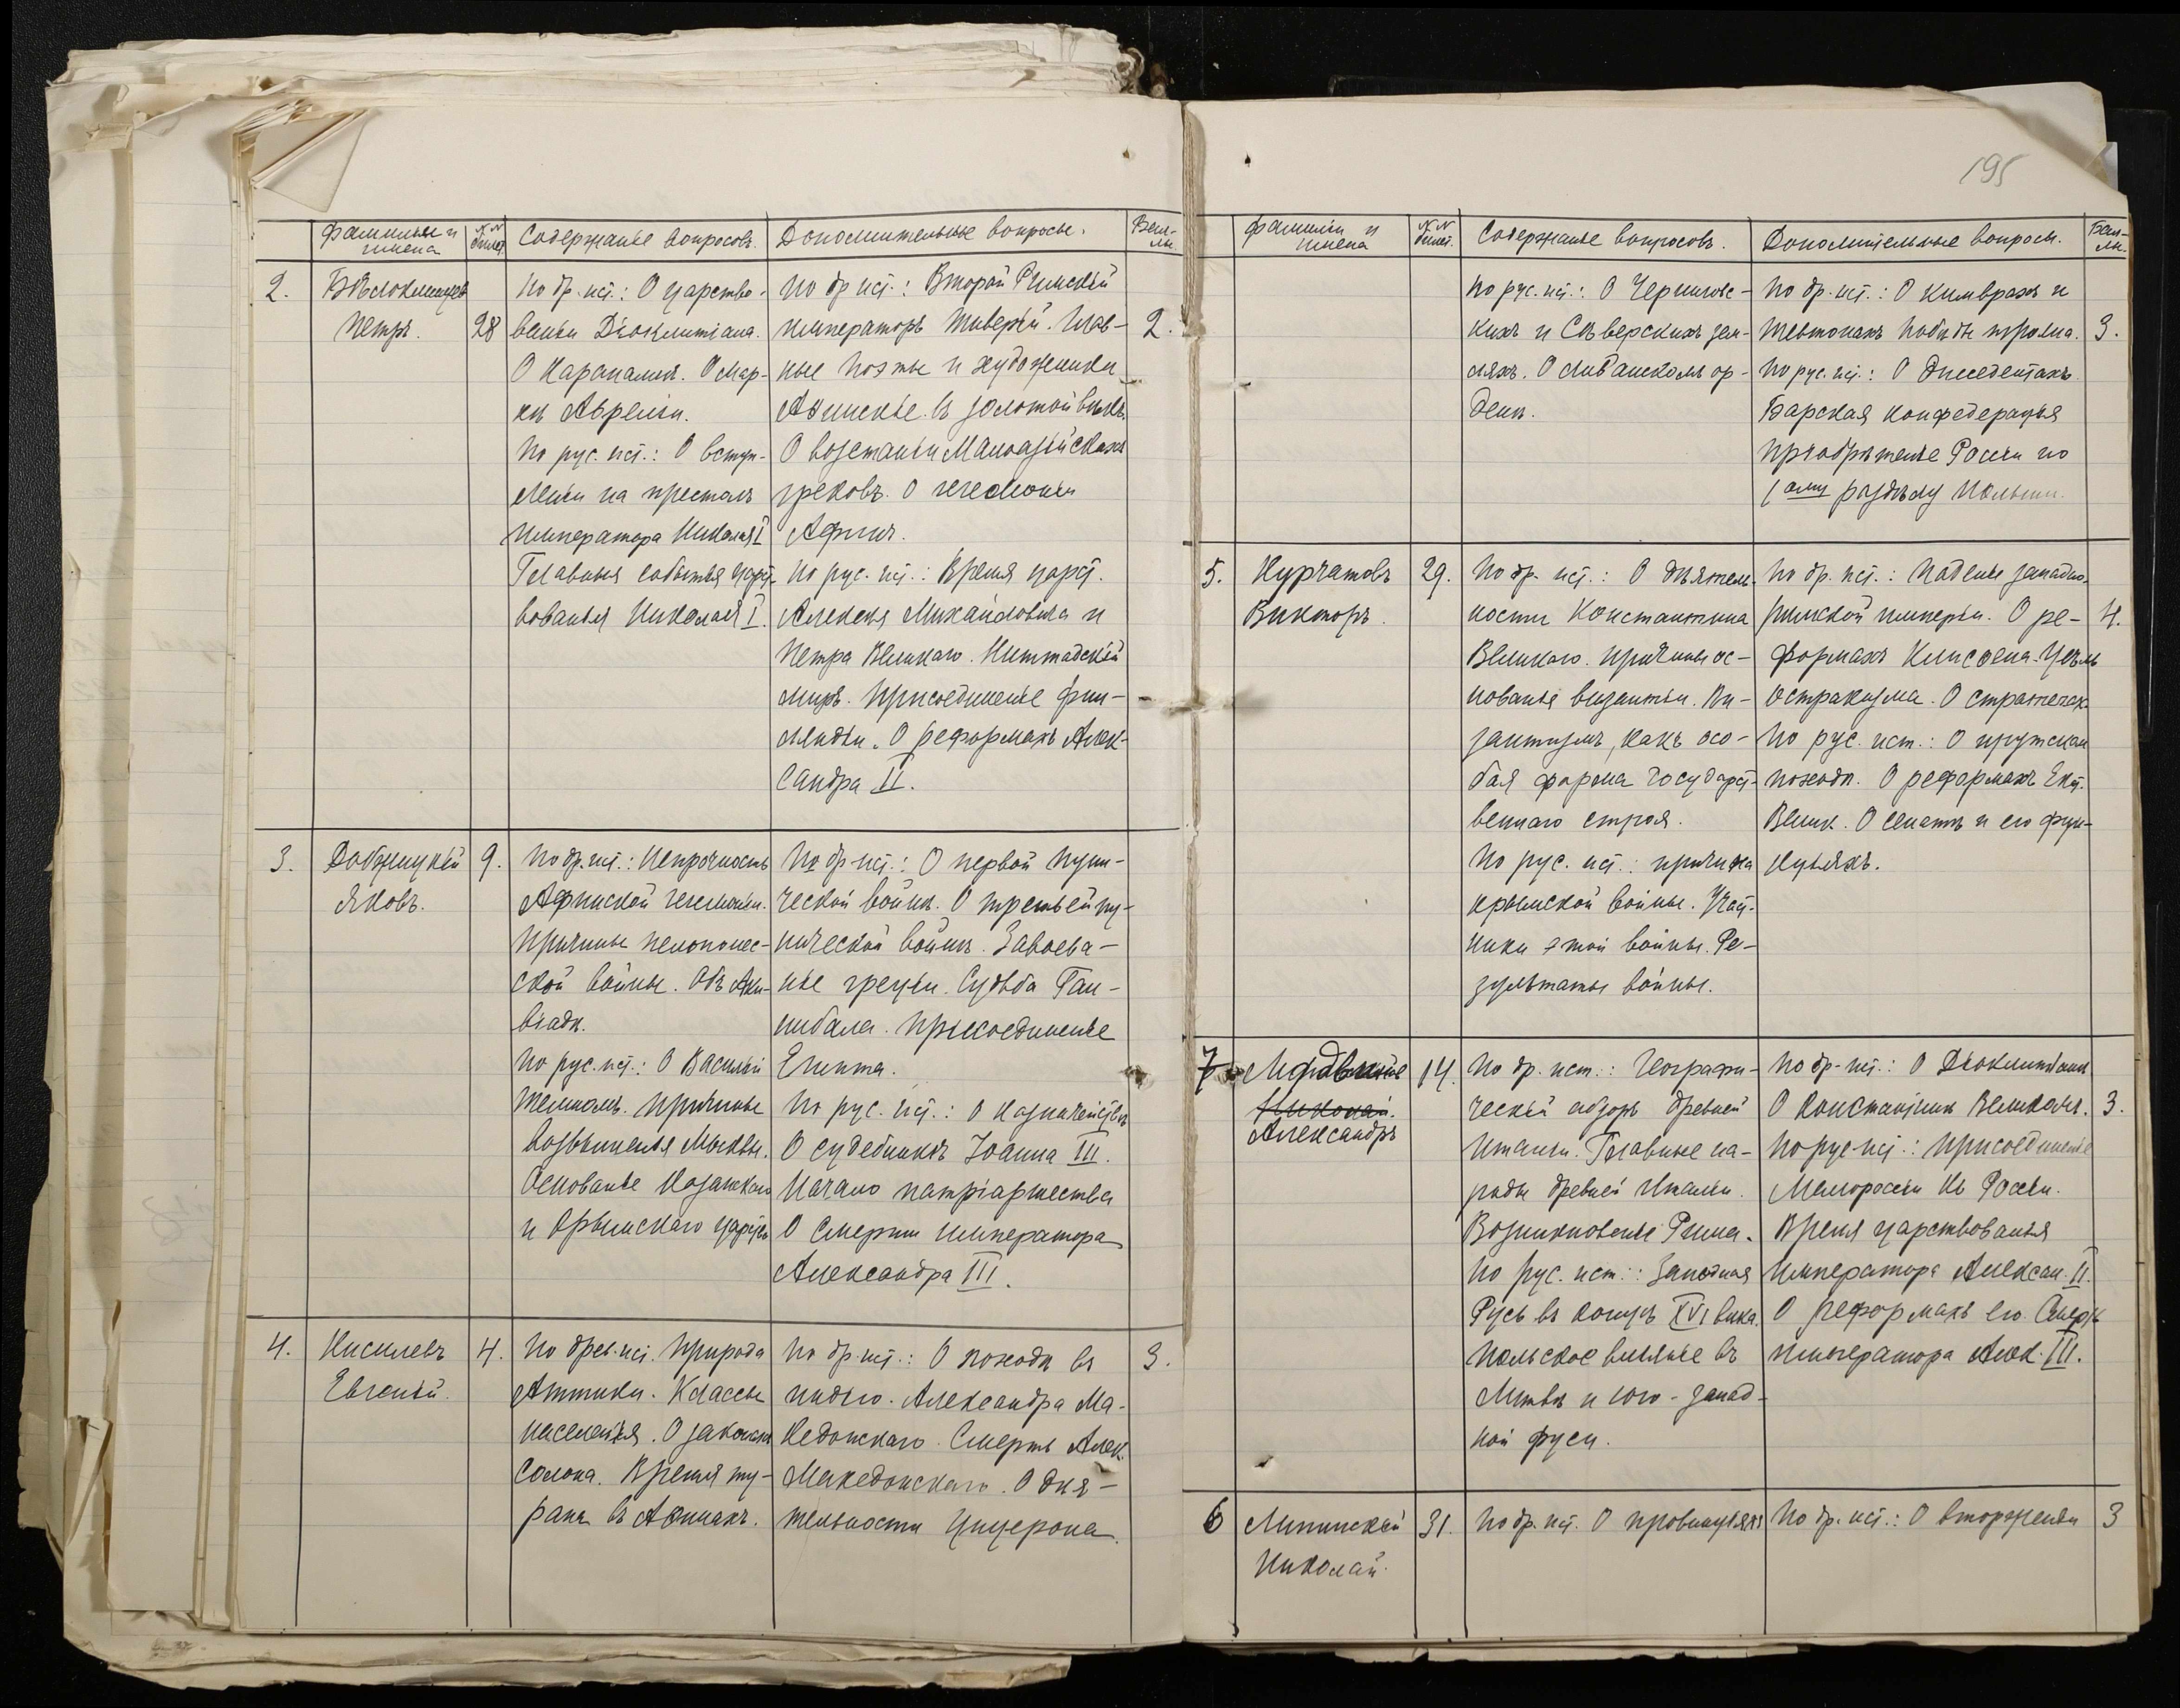 Фамилiи и имена
№№ билет.
Содержанiе вопросовъ.
Дополнительные вопросы.
Бал-
лы.
2.
Петръ.
28
По др. ист.: О царство-
ванiи Дiоклитiана.
О Каракаллѣ. О Мар-
кѣ Аврелiи.
По рус. ист.: О вступ-
ленiи на престолъ
императора Николая I
Главныя событiя царст-
вованiя Николая I.
По др. ист.: Второй Римскiй
императоръ Тиверiй. Глав-
ные поэты и художники
Афинскiе въ золотой вѣкъ.
О возстанiи Малоазiйскихъ
грековъ. О гегемонiи
Афинъ.
По рус. ист.: Время царст.
Алексѣя Михайловича и
Петра Великаго. Ништадскiй
миръ. Присоединенiе Фин-
ляндiи. О реформахъ Алек-
сандра II.
2.
3.
Яковъ.
9.
По др. ист.: Непрочность
Афинской гегемонiи.
Причины пелопонес-
ской войны. Объ Алки-
вiадѣ.
По рус. ист.: О Василiи
Темномъ. Причины
возвышенiя Москвы.
Основанiе Казанскаго
и Крымскаго царствъ
По др. ист.: О первой пуни-
ческой войнѣ. О третьей пу-
нической войнѣ. Завоева-
нiе грецiи. Судьба Ган-
нибала. Присоединенiе
Египта.
По рус. ист.: О казначействѣ
О судебникѣ Iоанна III.
Начало патрiаршества
О смерти императора
Александра III.
4.
Киселевъ
Евгенiй.
4.
По древ. ист. Природа
Аттики. Классы
населенiя. О законахъ
Солона. Время ти-
рана въ Афинахъ.
По др. ист.: О походѣ въ
индiю. Александра Ма-
кедонскаго. Смерть Алек.
Македонскаго. О дѣя-
тельности Цицерона.
3.
195
Фамилiи и имена
№№ билет.
Содержанiе вопросовъ.
Дополнительные вопросы.
Бал-
лы.
По рус. ист.: О Черниговс-
кихъ и Сѣверскихъ зем-
ляхъ. О Ливонскомъ ор-
денѣ.
По др. ист.: О Кимврахъ и
Тевтонахъ
По рус. ист.: О Диссидентахъ.
Барская конфедерацiя
Прiобрѣтенiе Россiи по
1ому раздѣлу Польши.
3.
5.
Курчатовъ
Викторъ.
29.
По др. ист.: О дѣятель-
ности Константина
Великаго. Причины ос-
нованiя византiи. Ви-
зантизмъ, какъ осо-
бая форма государст-
веннаго строя.
По рус. ист.: причина
крымской войны. Участ-
ники этой войны. Ре-
зультаты войны.
По др. ист.: Паденiе западно-
римской имперiи. О ре-
формахъ Клисфена. Цѣль
остракизма. О стратегахъ
По рус. ист.: О прутскомъ
походѣ. О реформахъ Екат.
Велик. О сенатѣ и его функ-
цiяхъ.
4.
7
Александръ
14.
По др. ист.: Географи-
ческiй обзоръ древней
Италiи. Главные на-
роды древней Италiи.
Возникновенiе Рима.
По рус. ист.: Западная
Русь въ концѣ XVI вѣка.
Польское влiянiе въ
Литвѣ и юго-запад-
ной руси.
По др. ист.: О Дiоклитiанѣ
О Константинѣ Великомъ.
По рус. ист.: присоединенiе
Малороссiи къ Россiи.
Время царствованiя
Императора Алексан. II.
О реформахъ его. Смерть
императора Алек. III.
3.
6
Липинскiй
Николай.
31.
По др. ист. О провинцiяхъ
По др. ист.: О вторженiи
3